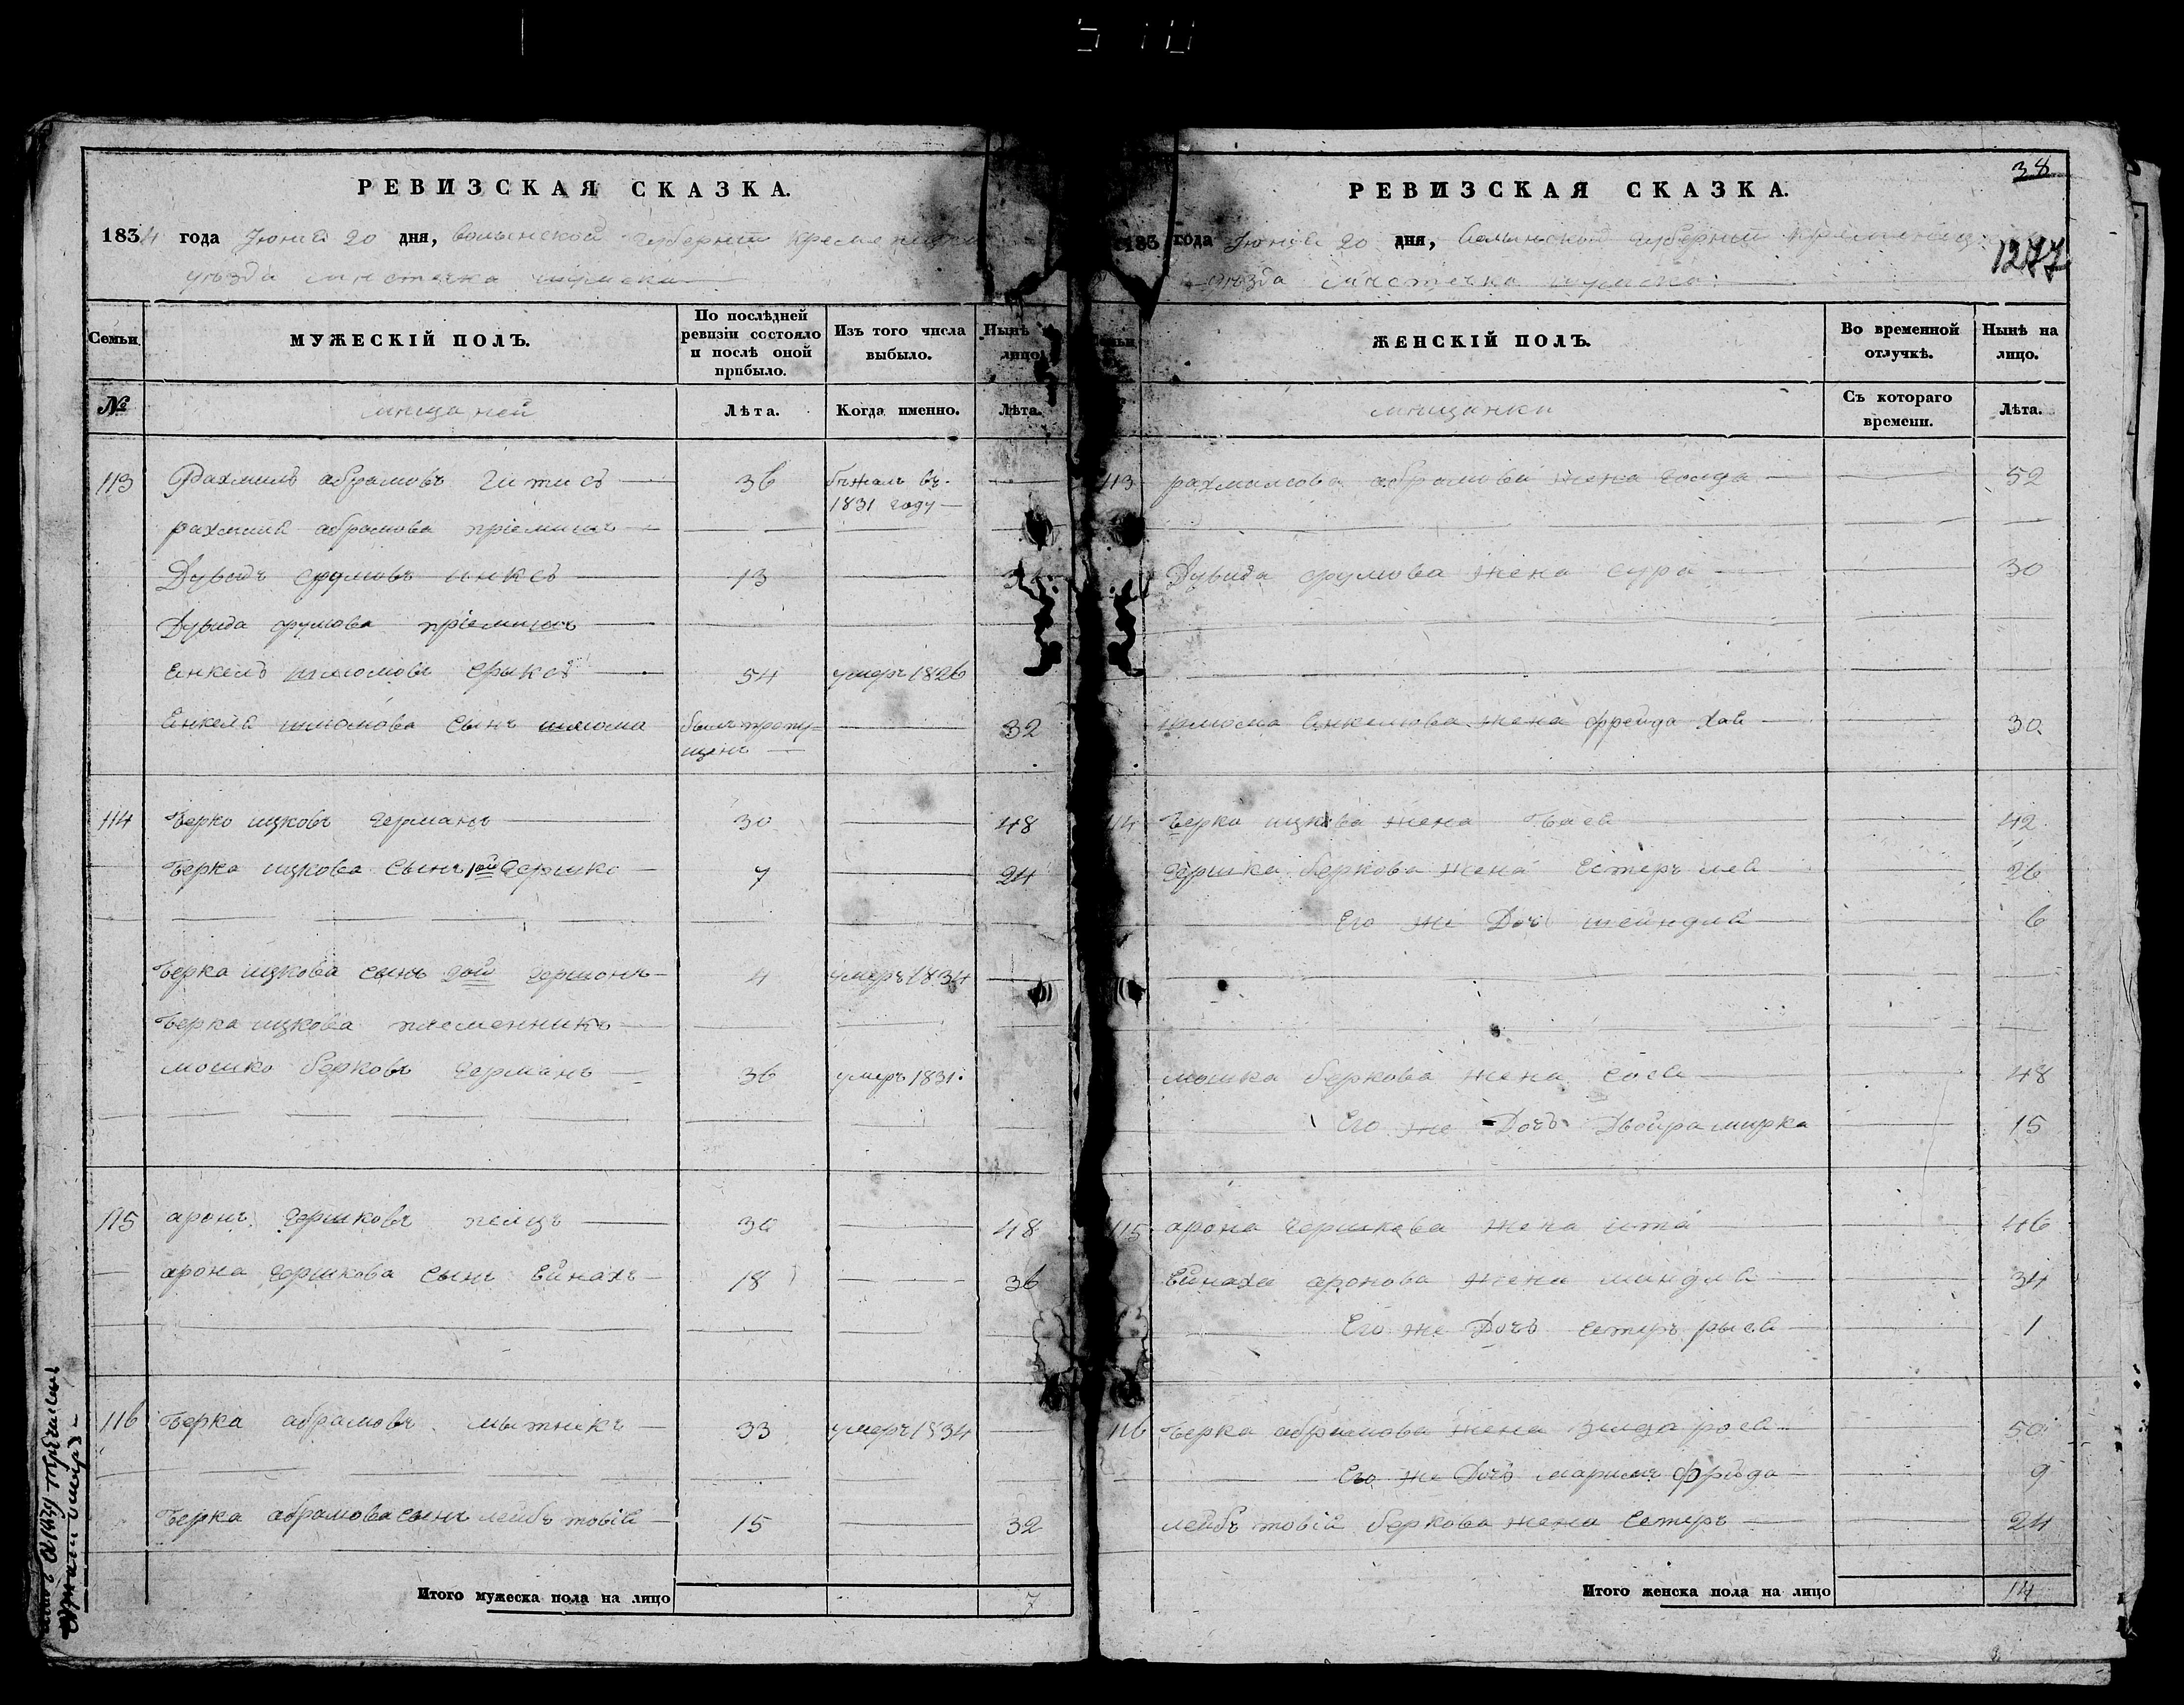 РЕВИЗСКАЯ СКАЗКА.
1834 года Июня 20 дня, Волынской губернии Кременецка
уѣзда мѣстечка шумска
Семьи
МУЖЕСКІЙ ПОЛЪ.
По послѣдней ревизіи состояло и послѣ оной прибыло.
Изъ того числа выбыло.
Нынѣ лицо
№
мещаней
Лѣта.
Когда именно.
Лѣта.
113 Рахмиль абрамовъ 36 бѣжалъ въ
1831 году
рахмиля абрамова пріемышъ
Дувидъ срулювъ 13
Дувида срулова пріемышъ
Енкель шлиомовъ 54 умеръ 1826
Енкеля шлиомова сынъ шлиома былъ пропу= 32
щенъ
114 Берко ицковъ Германъ 30 48
Берка ицкова сынъ 1ой Гершко 7 24
Берка ицкова сынъ 2ой Гершонъ 4 умеръ 1834
Берка ицкова племенникъ
мошко берковъ Германъ 36 умеръ 1831.
115 аронъ Гершковъ 30 48
арона Гершкова сынъ Ейнахъ 18 36
116 Берка абрамовъ мытникъ 33 умеръ 1834
Берка абрамова сынъ лейбъ товія 15 32
Итого мужеска пола на лицо 7
РЕВИЗСКАЯ СКАЗКА.
38
183 года Июня 20 дня, Волынской губерніи Кременец
1277
уѣзда мѣстечка шумска
ЖЕНСКІЙ ПОЛЪ.
Во временной отлучкѣ.
Нынѣ на лицо.
мещанки
Съ котораго времени.
Лѣта.
113 рахмилова абрамова жена Голда 52
Дувида срулова жена сура 30
шлиома Енкелиова жена фрейда хая 30
114 Берка ицкова жена Бася 42
Гершка беркова жена естеръ лея 26
Его же Доч шейндля 6
мошка беркова жена сося 48
Его же Дочъ Двойрамирка 15
115 арона Гершкова жена ита 46
Ейнаха аронова жена миндля 34
Его же Дочъ естеръ рыся 1
116 Берка абрамова жена рося 50
Его же Дочъ маримъ фрѣда 9
лейбъ товія беркова жена естеръ 24
Итого женска пола на лицо 14